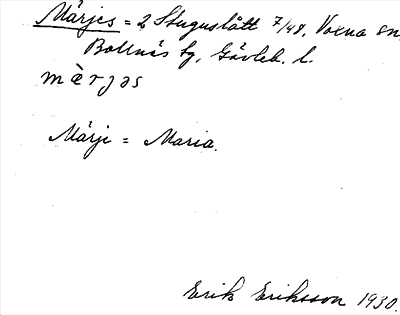 Märjes = 2 Stuguslått 7/48, Voxna sn.
Bollnäs tg, Gävleb. l.
mèrjəs
Märje = Maria.
Erik Eriksson 1930.